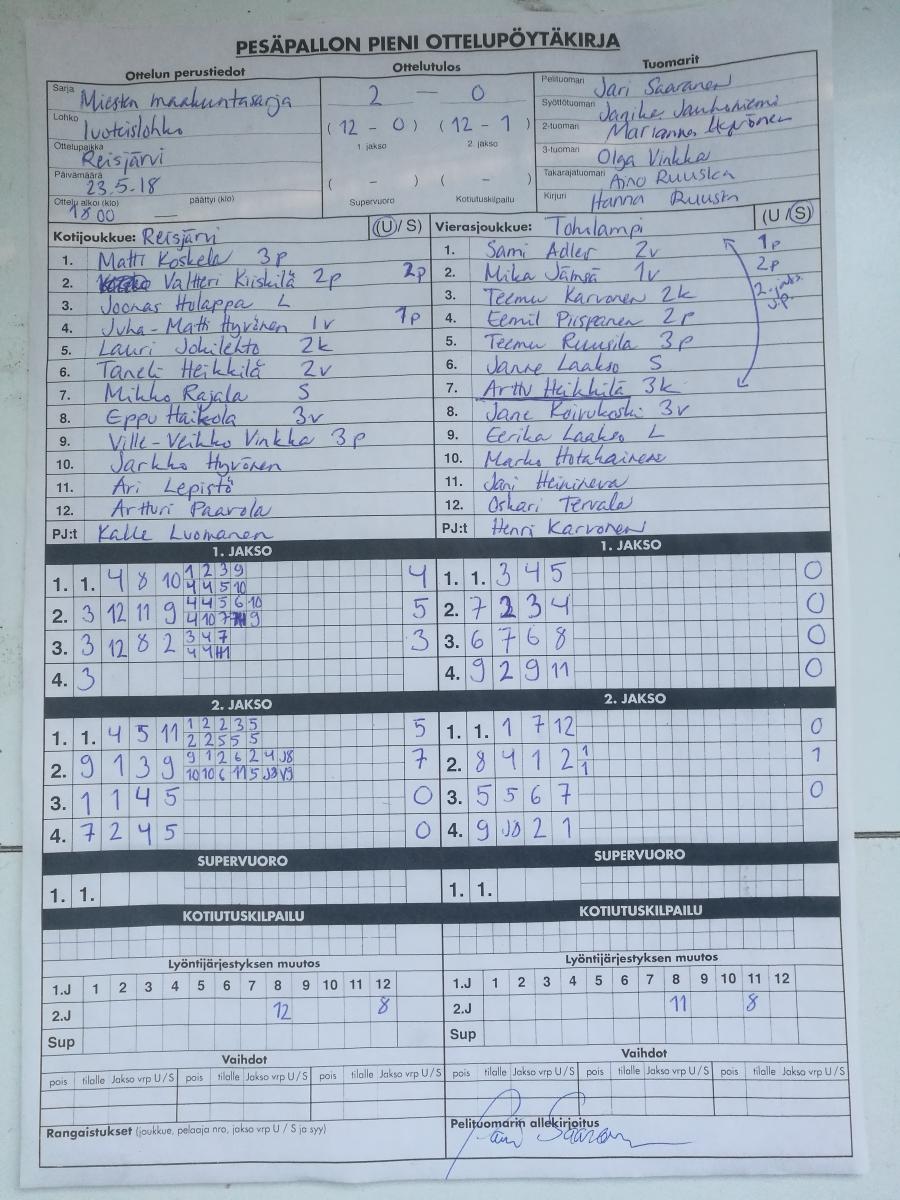 PESÄPALLON PIENI OTTELUPÖYTÄKIRJA
Ottelun perustiedot
Sarja Miesten maakuntasarja
Lohko luoteislohko
Ottelupaikka Reisjärvi
Päivämäärä 23.5-18
Ottelu alkoi (klo) 18 00 — päättyi (klo)
Ottelutulos
2 — 0
(12 - 0) (12 - 1)
1. jakso 2. jakso
( - ) ( - )
Supervuoro Kotiutuskilpailu
Tuomarit
Pelituomari Jari Saaranen
Syöttötuomari
2-tuomari Marianna Hyvönen
3-tuomari Olga Vinkka
Takarajatuomari Aino Ruuska
Kirjuri Hanna Ruuska
Kotijoukkue: Reisjärvi (U/S)
1. Matti Koskela 3p
2. Valtteri Kiiskilä 2p 2p
3. Joonas Holappa L
4. Juha-Matti Hyvönen 1v 1p
5. Lauri Jokilehto 2k
6. Taneli Heikkilä 2v
7. Mikko Rajala S
8. Eppu Haikola 3v
9. Ville-Veikko Vinkka 3p
10. Jarkko Hyvönen
11. Ari Lepistö
12. Artturi Paavola
PJ:t Kalle Luomanen
Vierasjoukkue: Toholampi (U/S)
1. Sami Adler 2v 1p
2. Mika Jämsä 1v 2p
3. Teemu Karvonen 2k
4. Eemil Piispanen 2p
5. Teemu Ruusila 3p
6. Janne Laakso S
7. Arttu Heikkilä 3k
8. Jane Koivukoski 3v
9. Eerika Laakso L
10. Marko Hotakainen
11. Jani Heinineva
12. Oskari Tervala
PJ:t Henri Karvonen
1. JAKSO
1. 1. 4 8 10 1 2 3 9 4
4 4 5 10
2. 3 12 11 9 4 4 5 6 10 5
4 10 7 9
3. 3 12 8 2 3 4 7 3
4 4 11
4. 3
1. JAKSO
1. 1. 3 4 5 0
2. 7 2 3 4 0
3. 6 7 6 8 0
4. 9 2 9 11 0
2. JAKSO
1. 1. 4 5 11 1 2 2 3 5 5
2 2 5 5 5
2. 9 1 3 9 9 1 2 6 2 4 J8 7
10 10 6 11 5 J3 V9
3. 1 1 4 5 0
4. 7 2 4 5 0
2. JAKSO
1. 1. 1 7 12 0
2. 8 4 1 2 1 1
1
3. 5 5 6 7 0
4. 9 J0 2 1
SUPERVUORO
1. 1.
SUPERVUORO
1. 1.
KOTIUTUSKILPAILU
KOTIUTUSKILPAILU
Lyöntijärjestyksen muutos
1.J 1 2 3 4 5 6 7 8 9 10 11 12
2.J 12 8
Sup
Lyöntijärjestyksen muutos
1.J 1 2 3 4 5 6 7 8 9 10 11 12
2.J 11 8
Sup
Vaihdot
pois tilalle Jakso vrp U/S pois tilalle Jakso vrp U/S pois tilalle Jakso vrp U/S
Vaihdot
pois tilalle Jakso vrp U/S pois tilalle Jakso vrp U/S pois tilalle Jakso vrp U/S
Rangaistukset (joukkue, pelaaja nro, jakso vrp U / S ja syy)
Pelituomarin allekirjoitus
Jari Saaranen